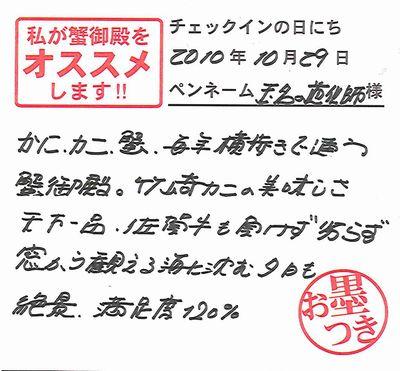 私が蟹御殿を
オススメ
します!!
チェックインの日にち
2010年10月29日
ペンネーム 玉名の道化師様
かに、カニ、蟹、毎年横歩きで通う
蟹御殿。竹崎カニの美味しさ
天下一品、佐賀牛も負けず劣らず
窓から観える海に沈む夕日も
絶景、満足度120%
お墨つき